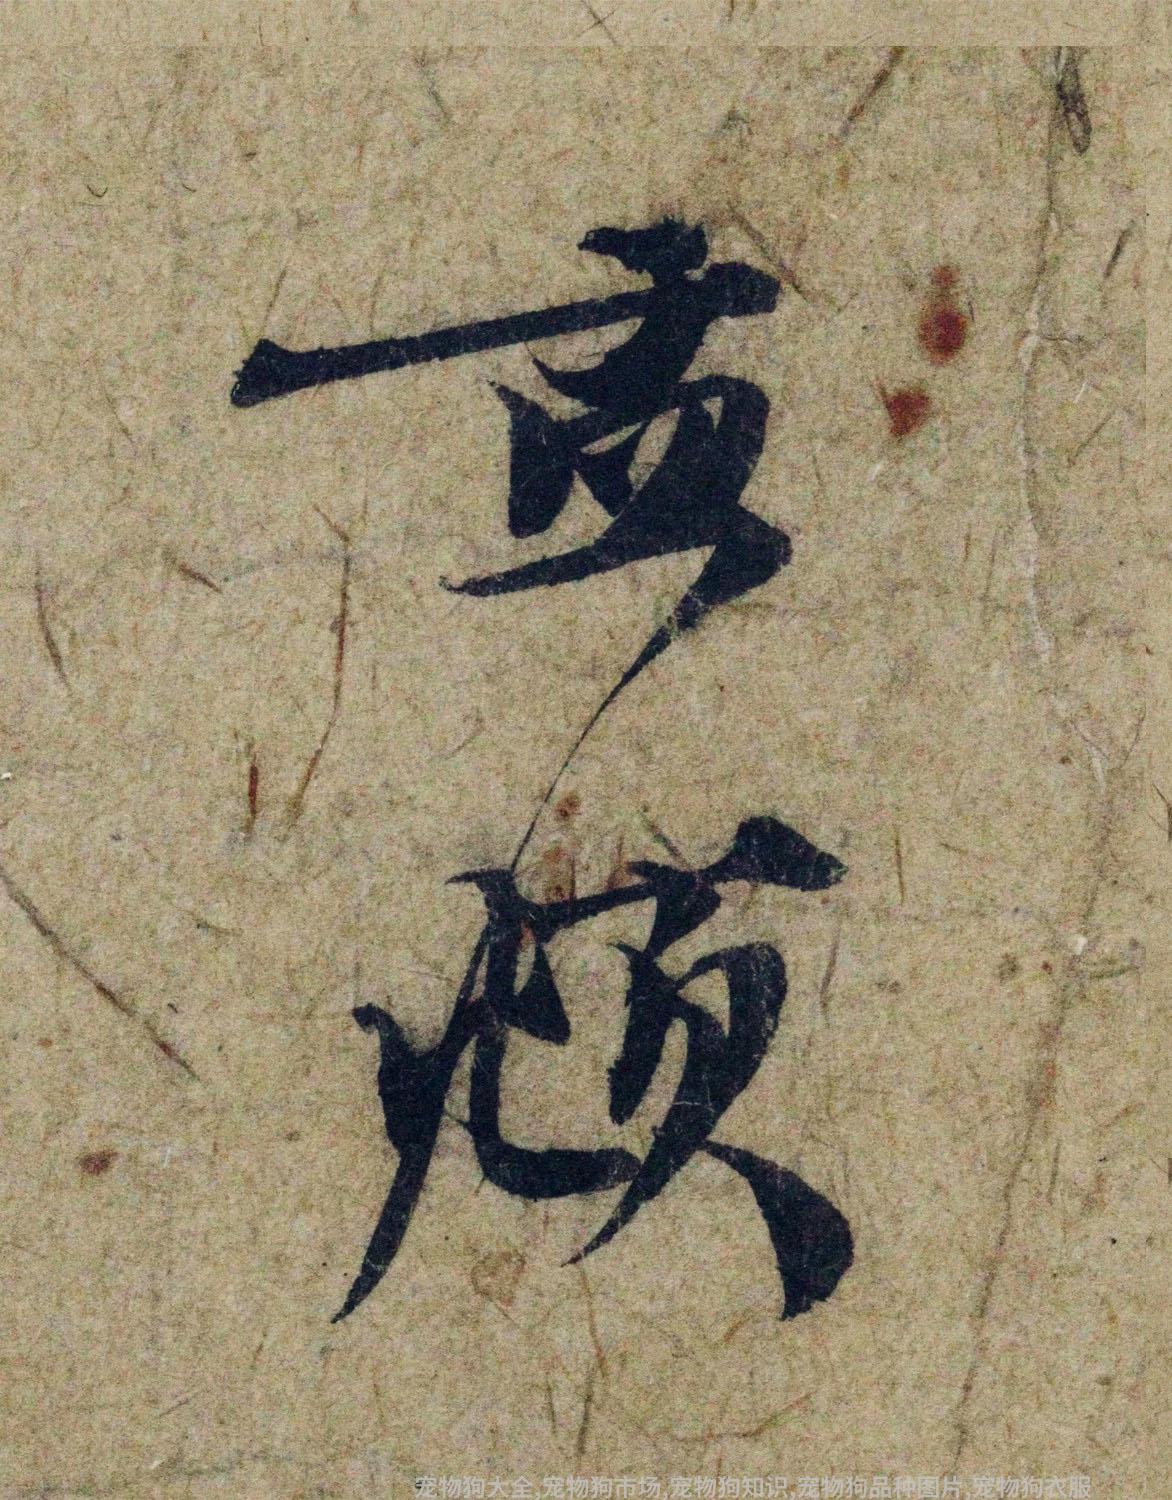 孟
頫
宠物狗大全,宠物狗市场,宠物狗知识,宠物狗品种图片,宠物狗衣服